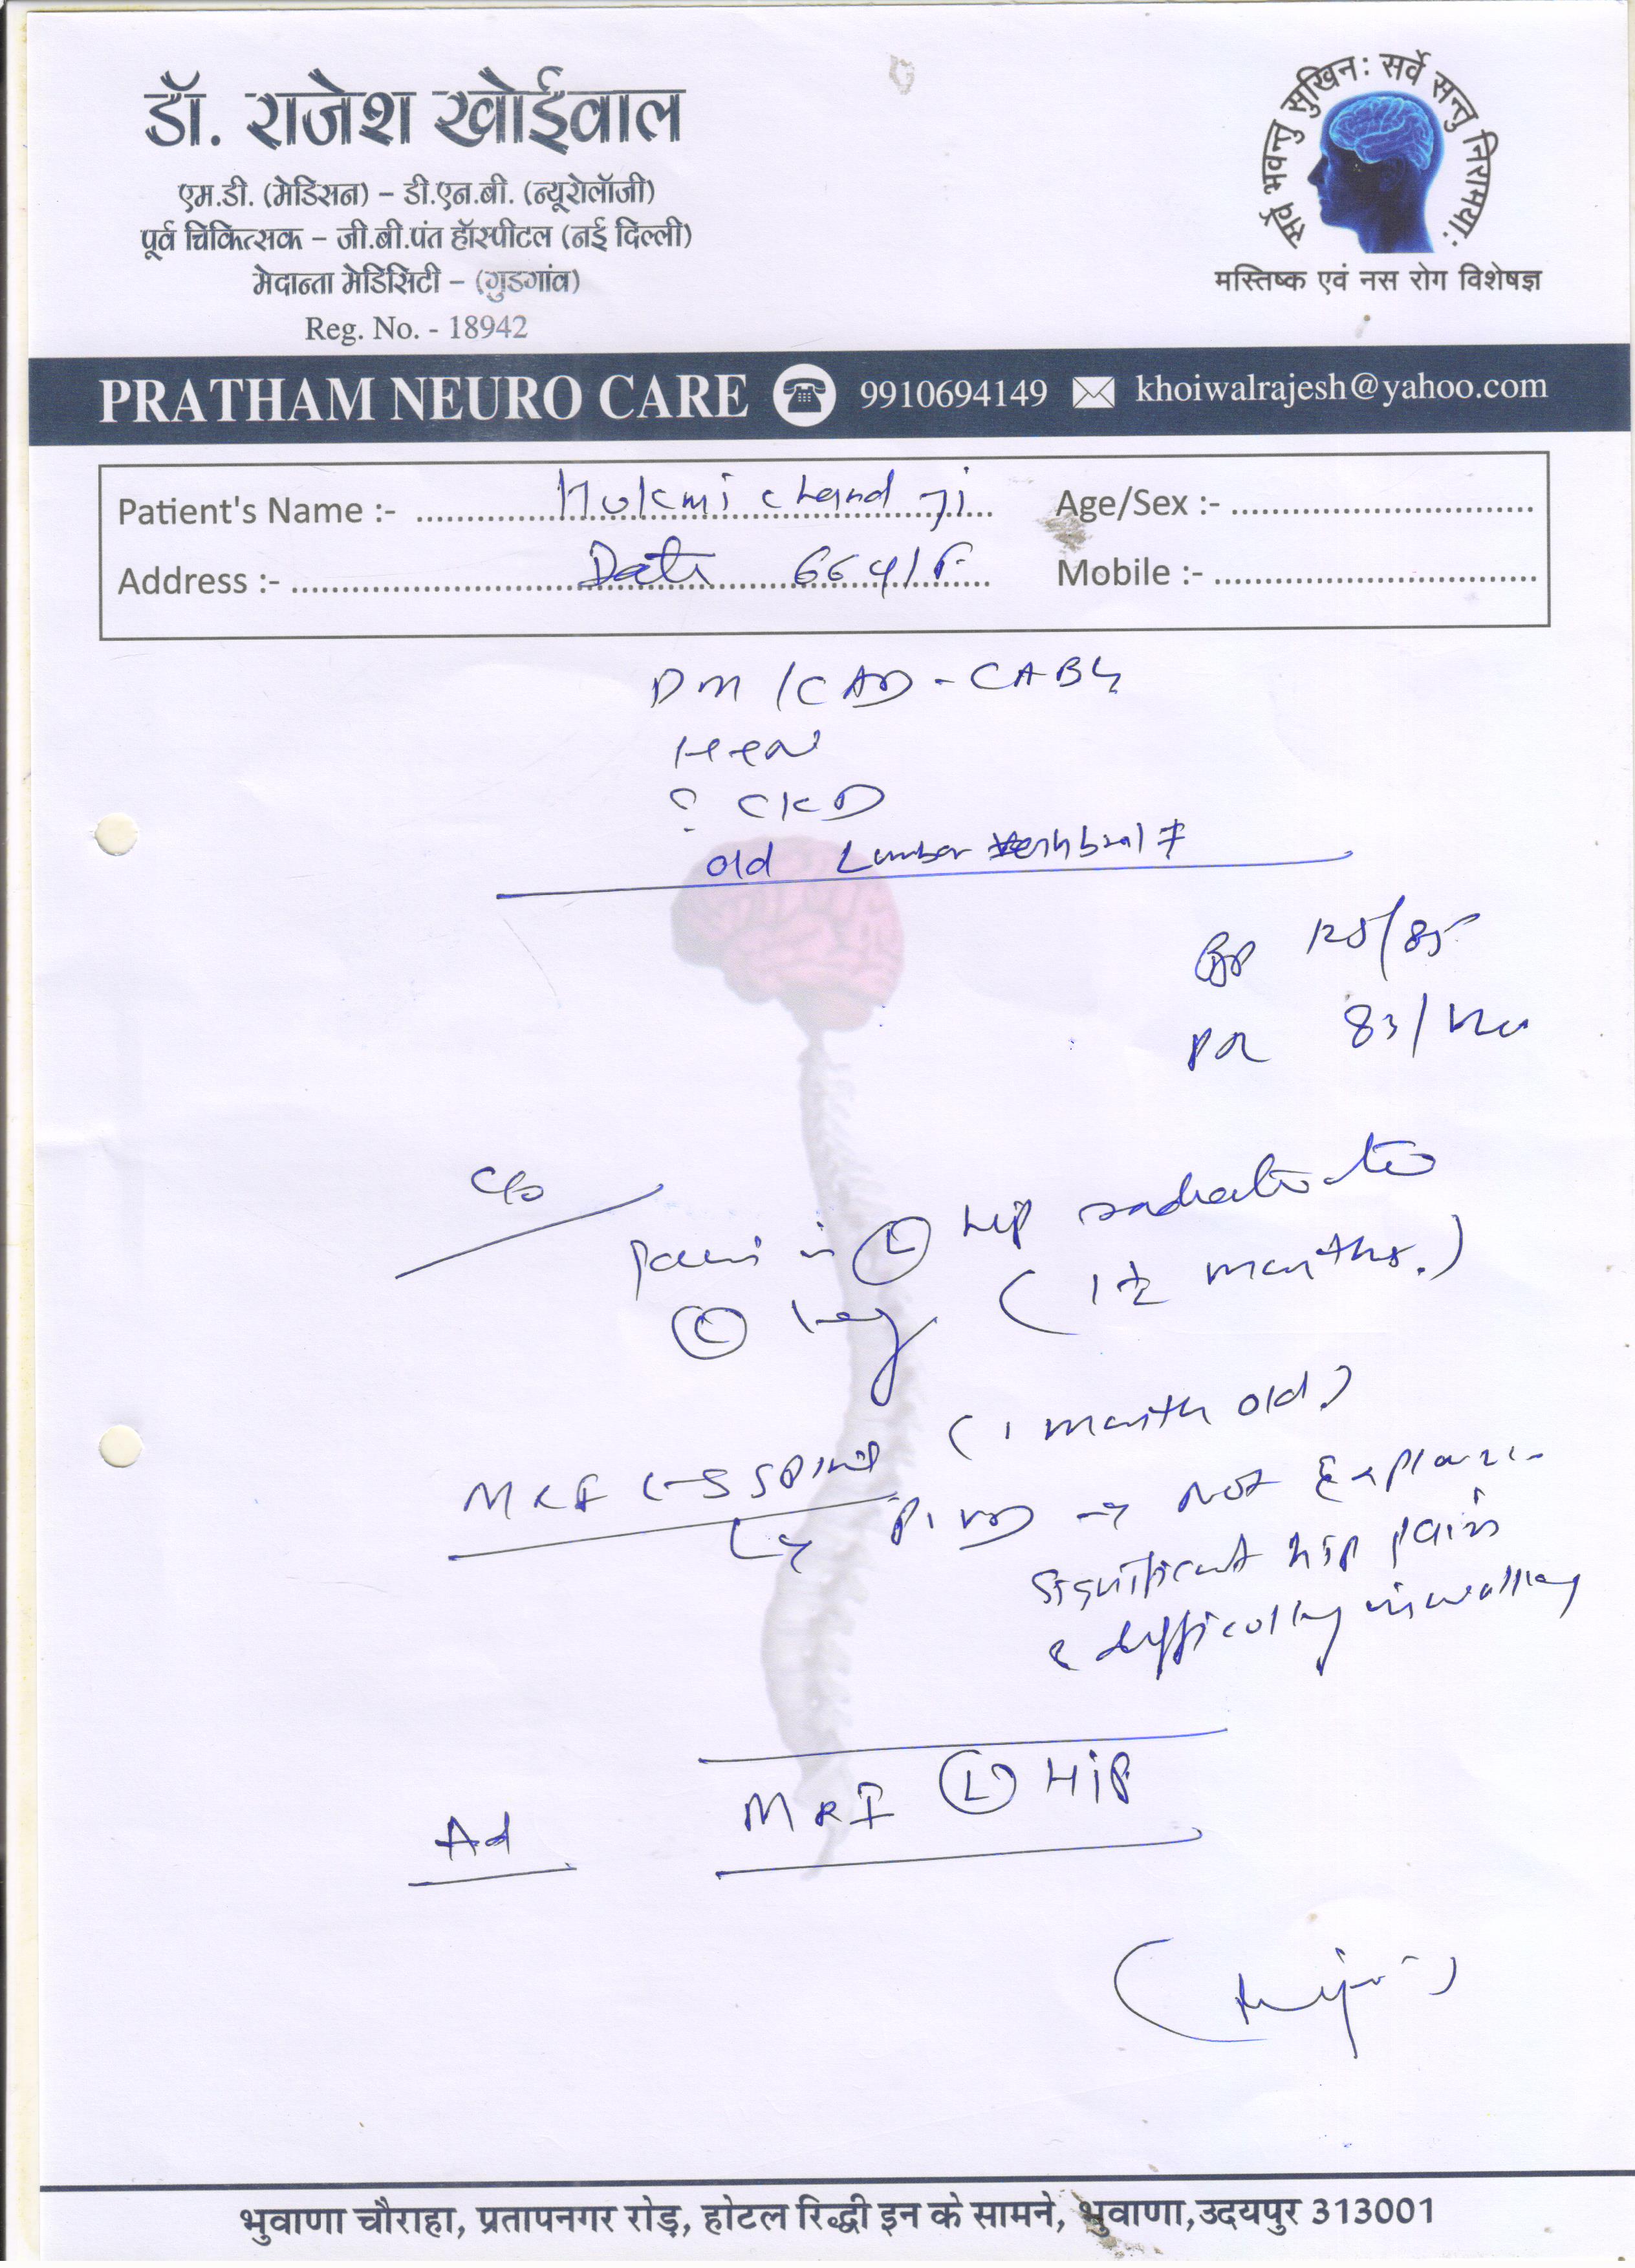 डॉ. राजेश खोईवाल
एम.डी. (मेडिसन) – डी.एन.बी. (न्यूरोलॉजी)
पूर्व चिकित्सक – जी.बी.पंत हॉस्पीटल (नई दिल्ली)
मेदान्ता मेडिसिटी – (गुडगांव)
Reg. No. - 18942
सर्वे भवन्तु सुखिनः सर्वे सन्तु निरामयाः
मस्तिष्क एवं नस रोग विशेषज्ञ
PRATHAM NEURO CARE 9910694149 khoiwalrajesh@yahoo.com
Patient's Name :- Hukmi chand ji Age/Sex :-
Address :- Mobile :-
DM / CAD - CABG
HTN
? CKD
old Lumbar vertebral #
BP 125/85
PR 83/
C/o
pain in (L) hip radiation to
(L) leg (1½ months.)
MRI L-S SPINE (1 month old)
PIVD → Not Explaining
significant hip pain
& difficulty in walking
Ad MRI (L) HIP
भुवाणा चौराहा, प्रतापनगर रोड़, होटल रिद्धी इन के सामने, भुवाणा,उदयपुर 313001